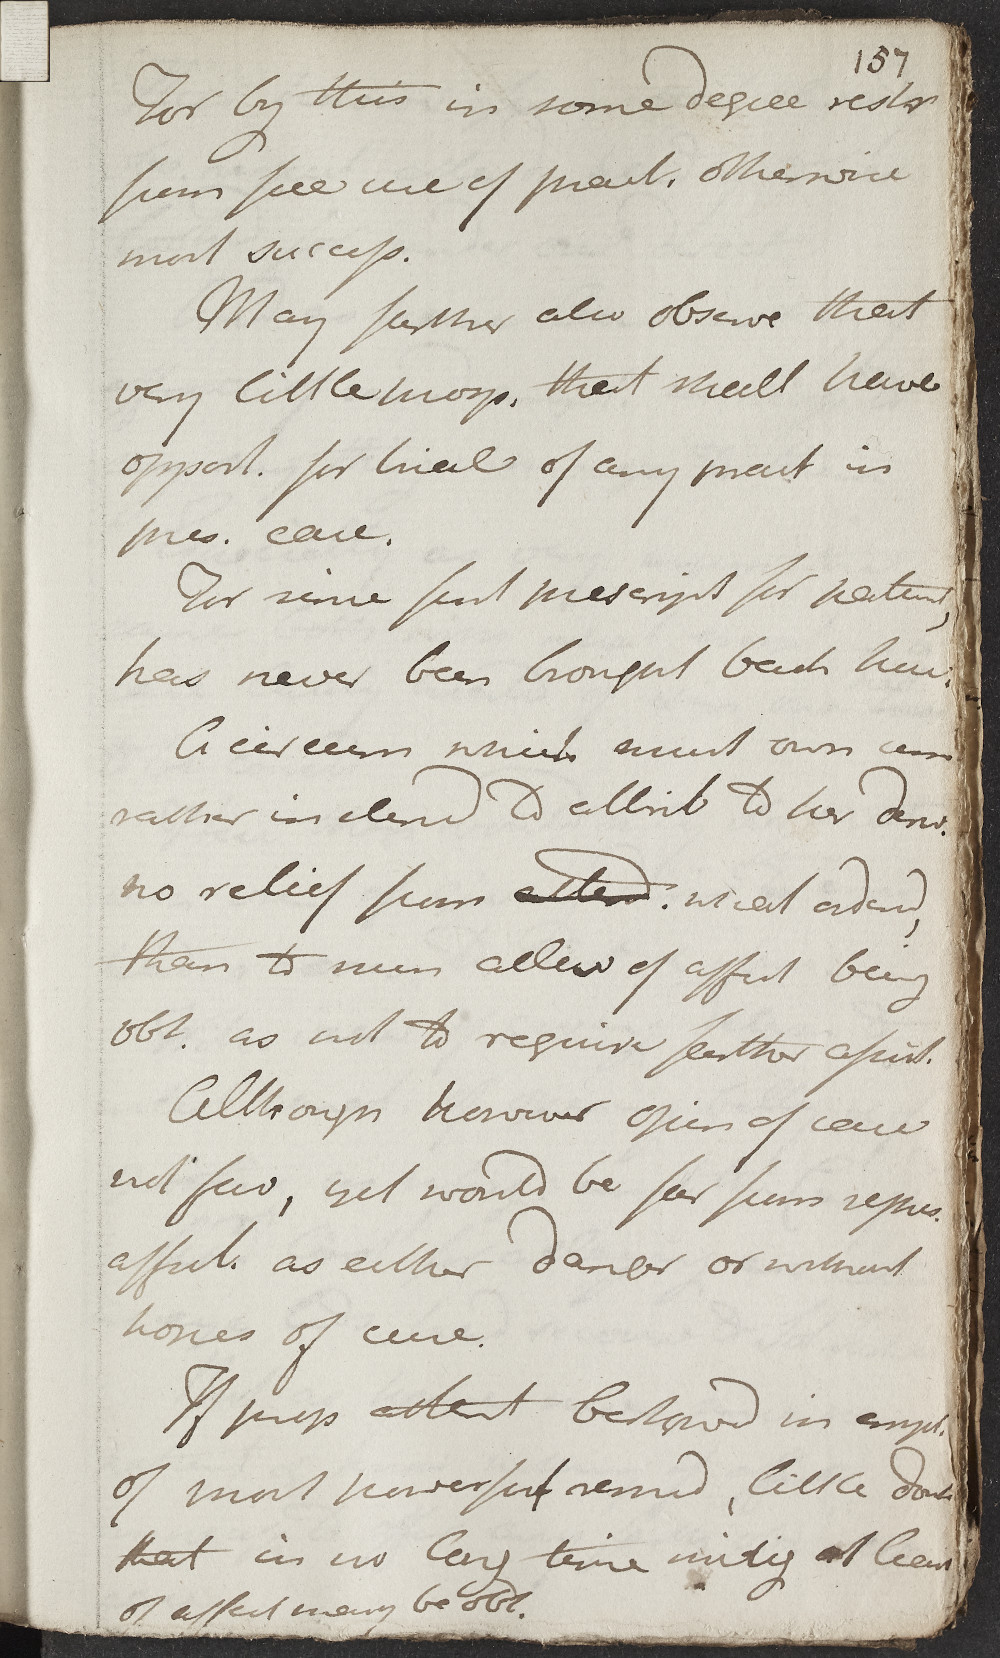 157
For by this in some degree restr
from free use of pract. otherwise
most success.
May farther also observe that
very little prosp. that shall have
opport. for trial of any pract in
pres. case.
For since first prescript for patient,
has never been brought back here.
A circum which must own am
rather inclend to attrib to her deriv.
no relief from attend. what ordend,
than to such allev of affect being
obt. as not to require farther assist.
Although however opin of case
not fav, yet would be far from repres.
affect. as either danger or without
hopes of cure.
If prop attent bestowd in empl.
of most powerful remed, little doubt
that in no long time mitig at least
of affect may be obt.